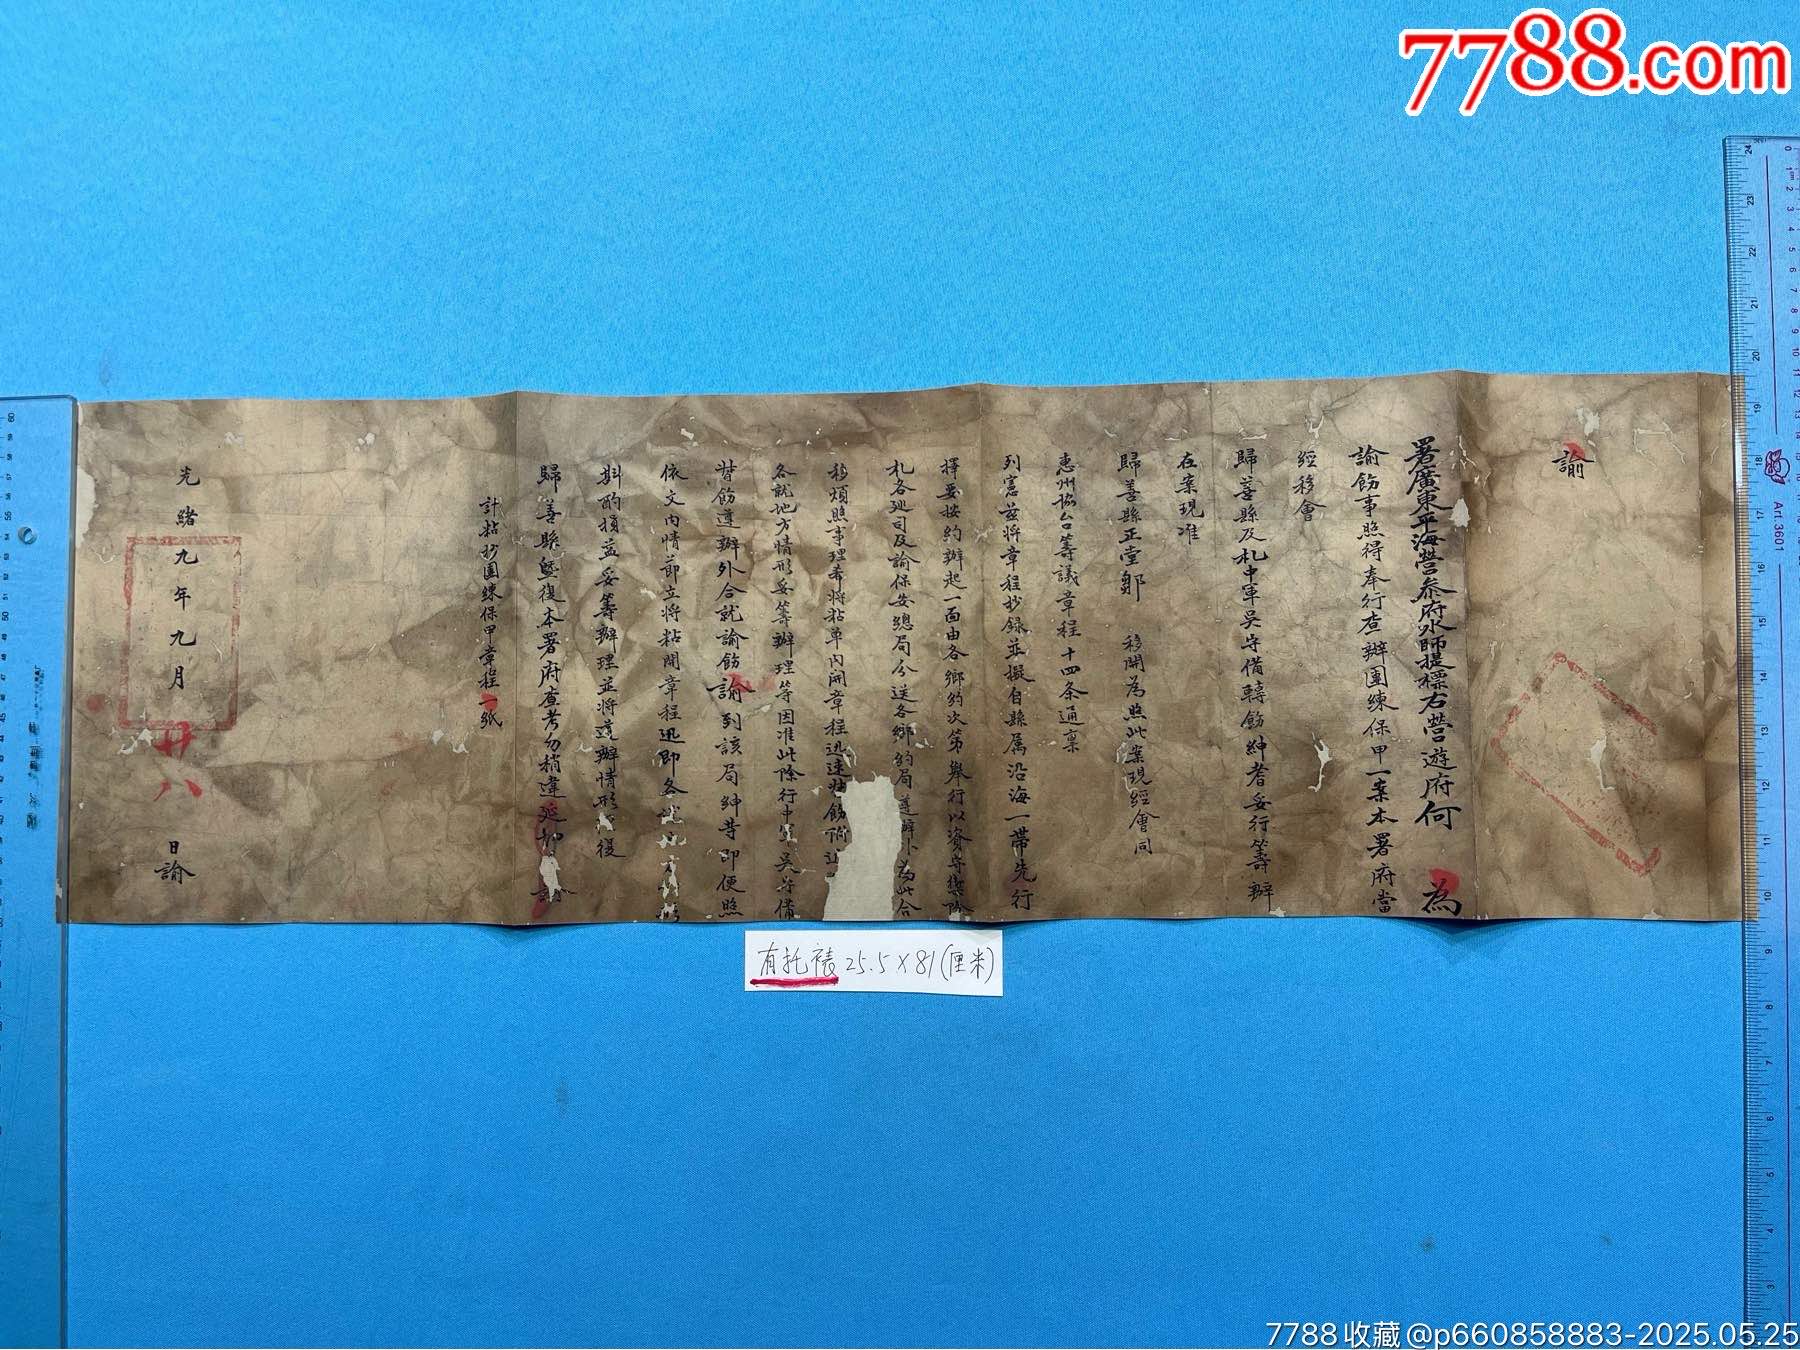 7788.com
諭
署廣東平海營叅府水師提標右營遊府何 為
諭飭事照得奉行查辦團練保甲一案本署府當
經移會
歸善縣及札中軍吳守備轉飭紳耆妥行籌辦
在案現准
歸善縣正堂鄒 移開為照此案現經會同
惠州協台籌議章程十四条通稟
列憲茲將章程抄録並擬自縣属沿海一帶先行
擇要按約辦起一面由各鄉約次第舉行以資守禦除
札各廵司及諭保安總局分送各鄉約局遵辦外為此合
移煩照事理希將粘單内開章程迅速
各就地方情形妥籌辦理等因准此除行中軍吳守備
轉飭遵辦外合就諭飭諭到該局紳耆即便照
依文内情節立將粘開章程迅即各
斟酌損益妥籌辦理並將遵辦情形 復
歸善縣暨復本署府查考勿稍違延 諭
計粘抄團練保甲章程一紙
光緒九年九月廿八日諭
有托裱25.5×81(厘米)
Art 3601
7788收藏@p660858883-2025.05.25